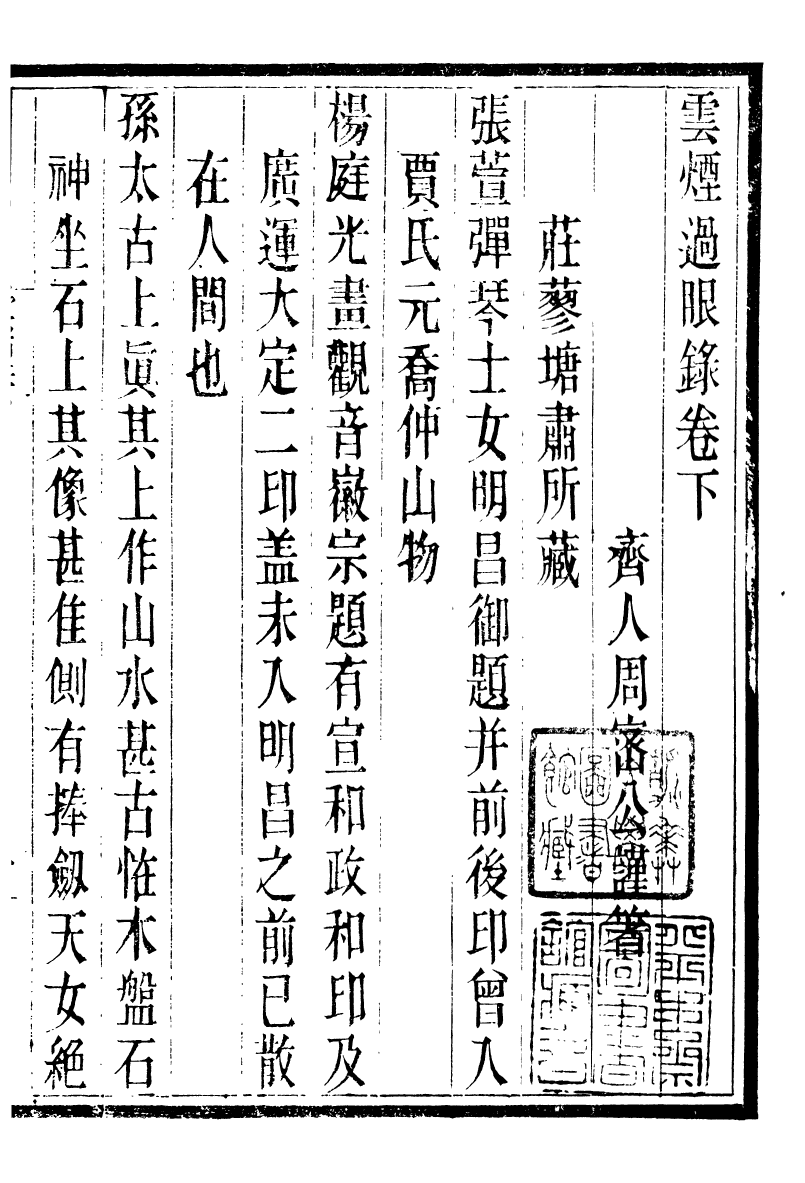 雲煙過眼錄卷下
齊人周密公謹著
莊蓼塘肅所藏
張萱彈琴士女明昌御題并前後印曾入
賈氏元喬仲山物
楊庭光畫觀音徽宗題有宣和政和印及
廣運大定二印盖未入明昌之前已散
在人間也
孫太古上眞其上作山水甚古恠木盤石
神坐石上其像甚佳側有捧劔天女絕